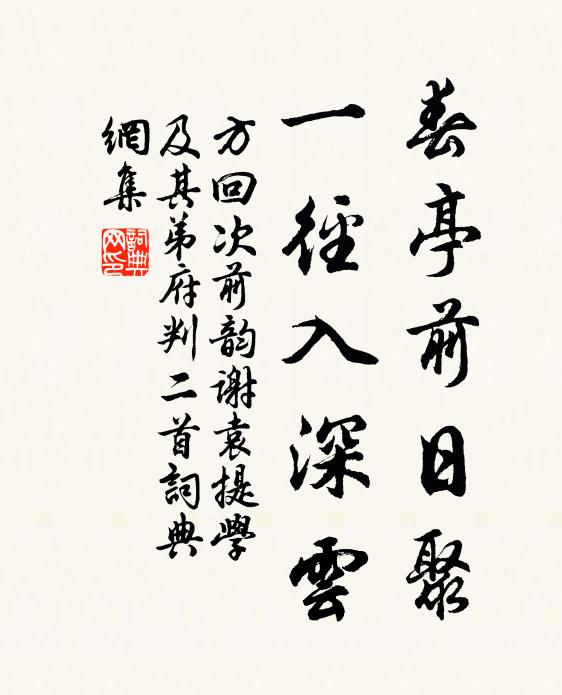 春亭前日聚
一徑入深雲
方回次前韵謝袁提學
及其弟府判二首詞典
網集
詞典網印